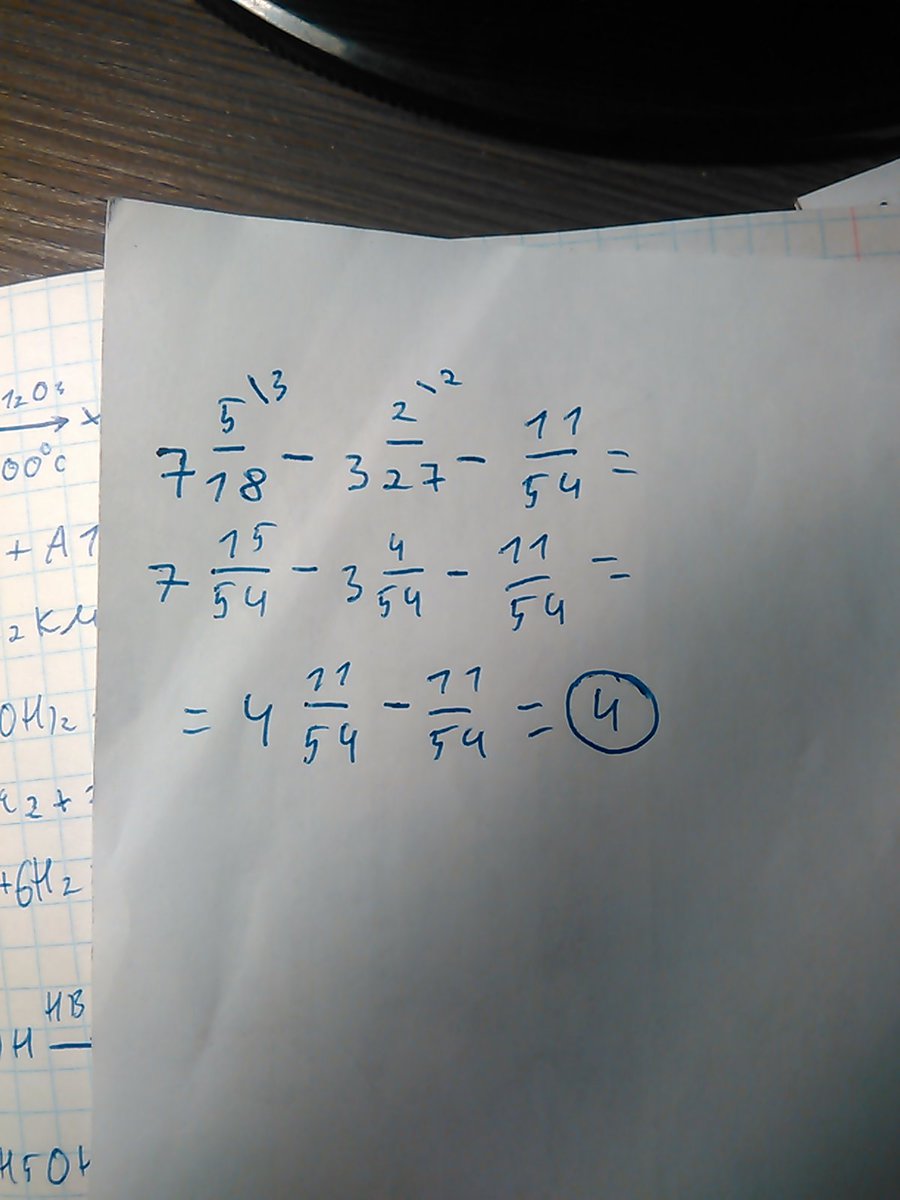 7 5\3/18 - 3 2\2/27 - 11/54 =
7 15/54 - 3 4/54 - 11/54 =
= 4 11/54 - 11/54 = 4
00°C
+ A1
2KM
+6H2
HB
H5OH